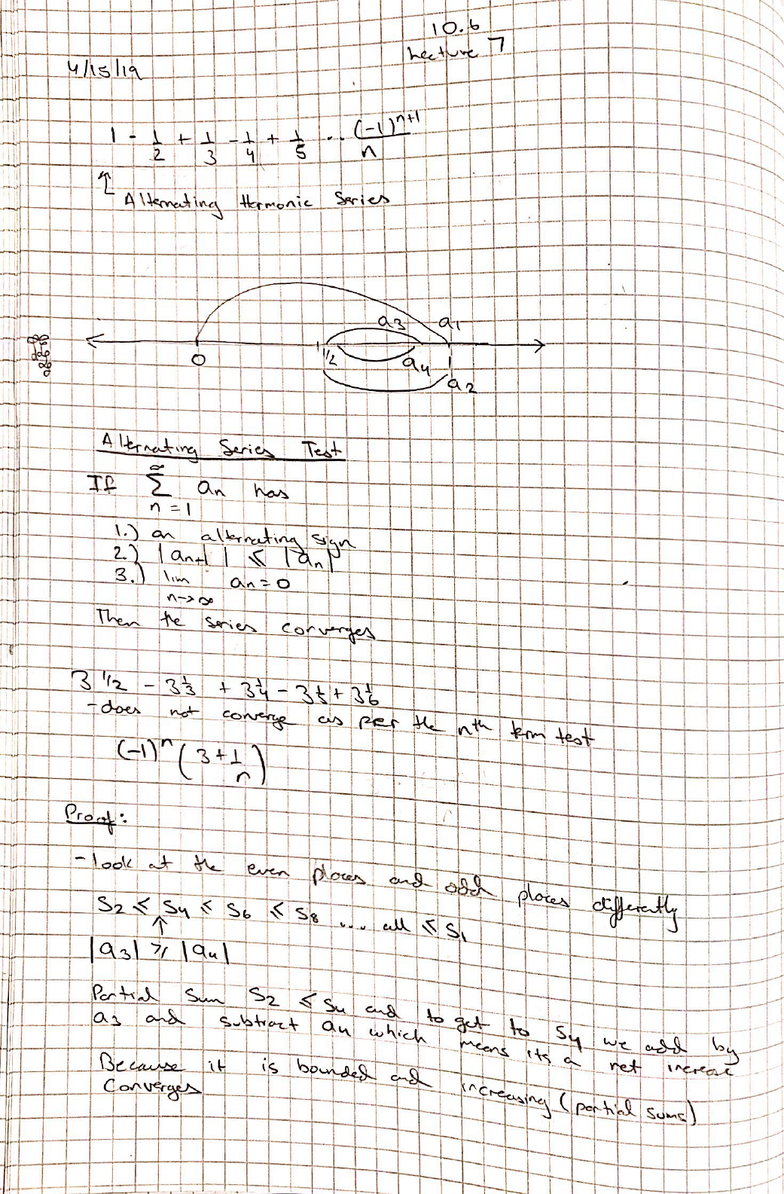 10.6
Lecture 7
4/15/19
1 - 1/2 + 1/3 - 1/4 + 1/5 ... (-1)^{n+1}/n
↑
Alternating Harmonic Series
a3 a1
0 1/2 a4 1
a2
Alternating Series Test
If ∑_{n=1}^{∞} an has
1.) an alternating sign
2.) |an+1| ≤ |an|
3.) lim_{n→∞} an = 0
Then the series converges
3 1/2 - 3 1/3 + 3 1/4 - 3 1/5 + 3 1/6
- does not converge as per the nth term test
(-1)^n (3 + 1/n)
Proof:
- look at the even places and odd places differently
S2 ≤ S4 ≤ S6 ≤ S8 .... all ≤ S1
↑
|a3| ≥ |a4|
Partial Sum S2 ≤ S4 and to get to S4 we add by
a3 and subtract a4 which means its a net increase
Because it is bounded and increasing (partial sums)
Converges